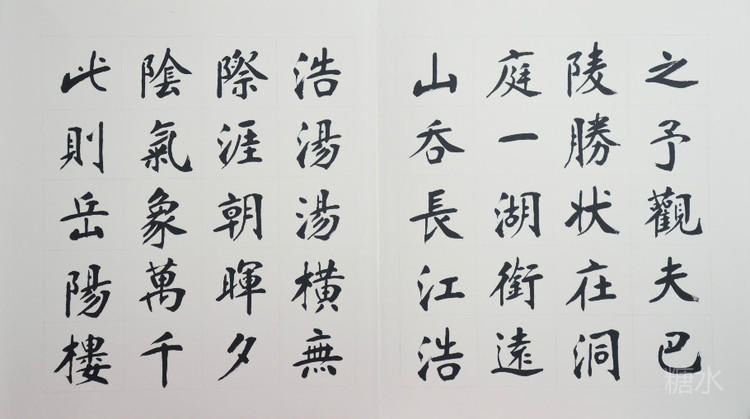 之予觀夫巴
陵勝状在洞
庭一湖銜遠
山吞長江浩
浩湯湯橫無
際涯朝暉夕
陰氣象萬千
此則岳陽樓
糖水